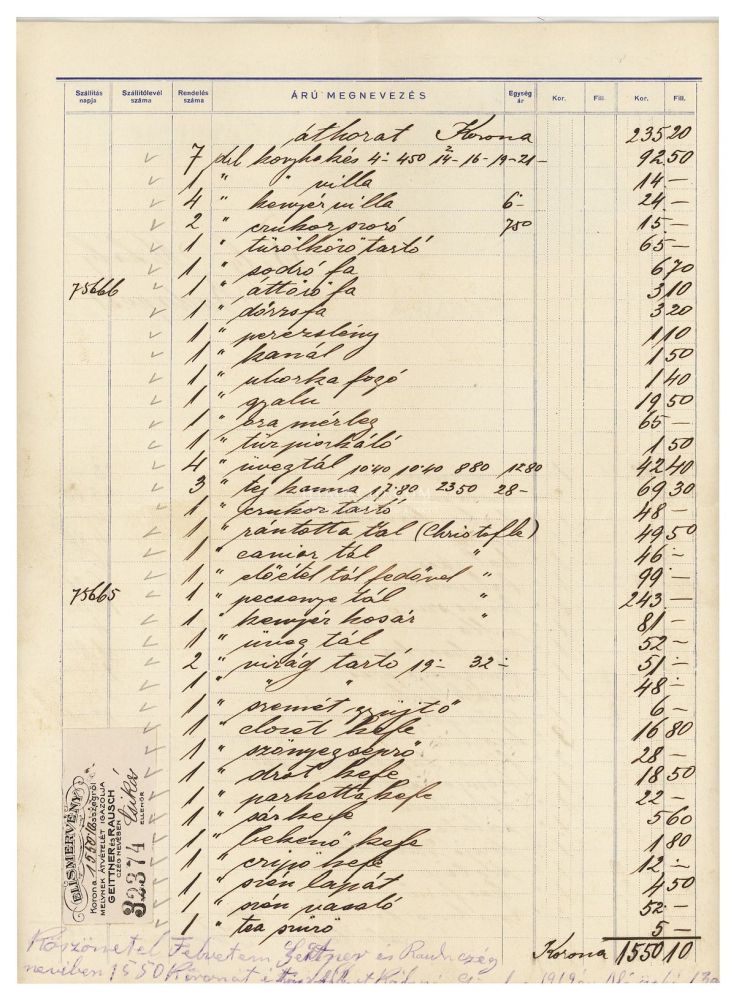 Szállítás napja Szállítólevél száma Rendelés száma ÁRÚ MEGNEVEZÉS Egység ár Kor. Fill. Kor. Fill.
áthozat Korona 235 20
7 drb konyhakés 4·- 450 14- 16- 19- 21- 92.50
1 " " villa 14.—
4 " kenyér villa 6·- 24 —
2 " czukor szoró 750 15.—
1 " türölköző tartó 65 —
1 " sodró fa 6 70
75666 1 " áttörő fa 3 10
1 " dörzsfa 3 20
1 " 1 10
1 " kanál 1 50
1 " uborka fogó 1 40
1 " gyalu 19 50
1 " óra mérleg 65 —
1 " tüz piszkáló 1 50
4 " üvegtál 10·40 10·40 8 80 12 80 42 40
3 " tej kanna 17·80 23 50 28- 69 30
1 " czukor tartó 48 —
1 " rántotta tál (Christofle) 49 50
1 " caviar tál " 46 —
1 " előétel tál fedővel " 99 —
75665 1 " pecsenye tál " 243 —
1 " kenyér kosár " 81 —
1 " üveg tál 52 —
2 " virág tartó 19·- 32·- 51 —
1 " " " 48 —
1 " szemét gyüjtő 6 —
1 " closet kefe 16 80
1 " szőnyegseprő 28 —
1 " drót kefe 18 50
1 " parketta kefe 22 —
1 " sárkefe 5 60
1 " bekenő kefe 1 80
1 " czipő kefe 12 —
1 " szén lapát 4 50
1 " szén vasaló 52 —
1 " tea szürő 5 —
Korona 1550 10
ELISMERVÉNY
Korona 1550.10 összegről
MELYNEK ÁTVÉTELÉT IGAZOLJA
GEITTNER és RAUSCH
CZÉG NEVÉBEN
32374
ELLENŐR
Köszönettel Felvettem Geittner és Rausch czég
nevében 1550 Koronát